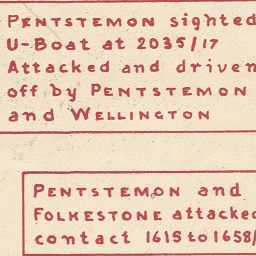 PENTSTEMON sighted
U-Boat at 2035/17
Attacked and driven
off by PENTSTEMON
and WELLINGTON
PENTSTEMON and
FOLKESTONE attacked
contact 1615 to 1658/